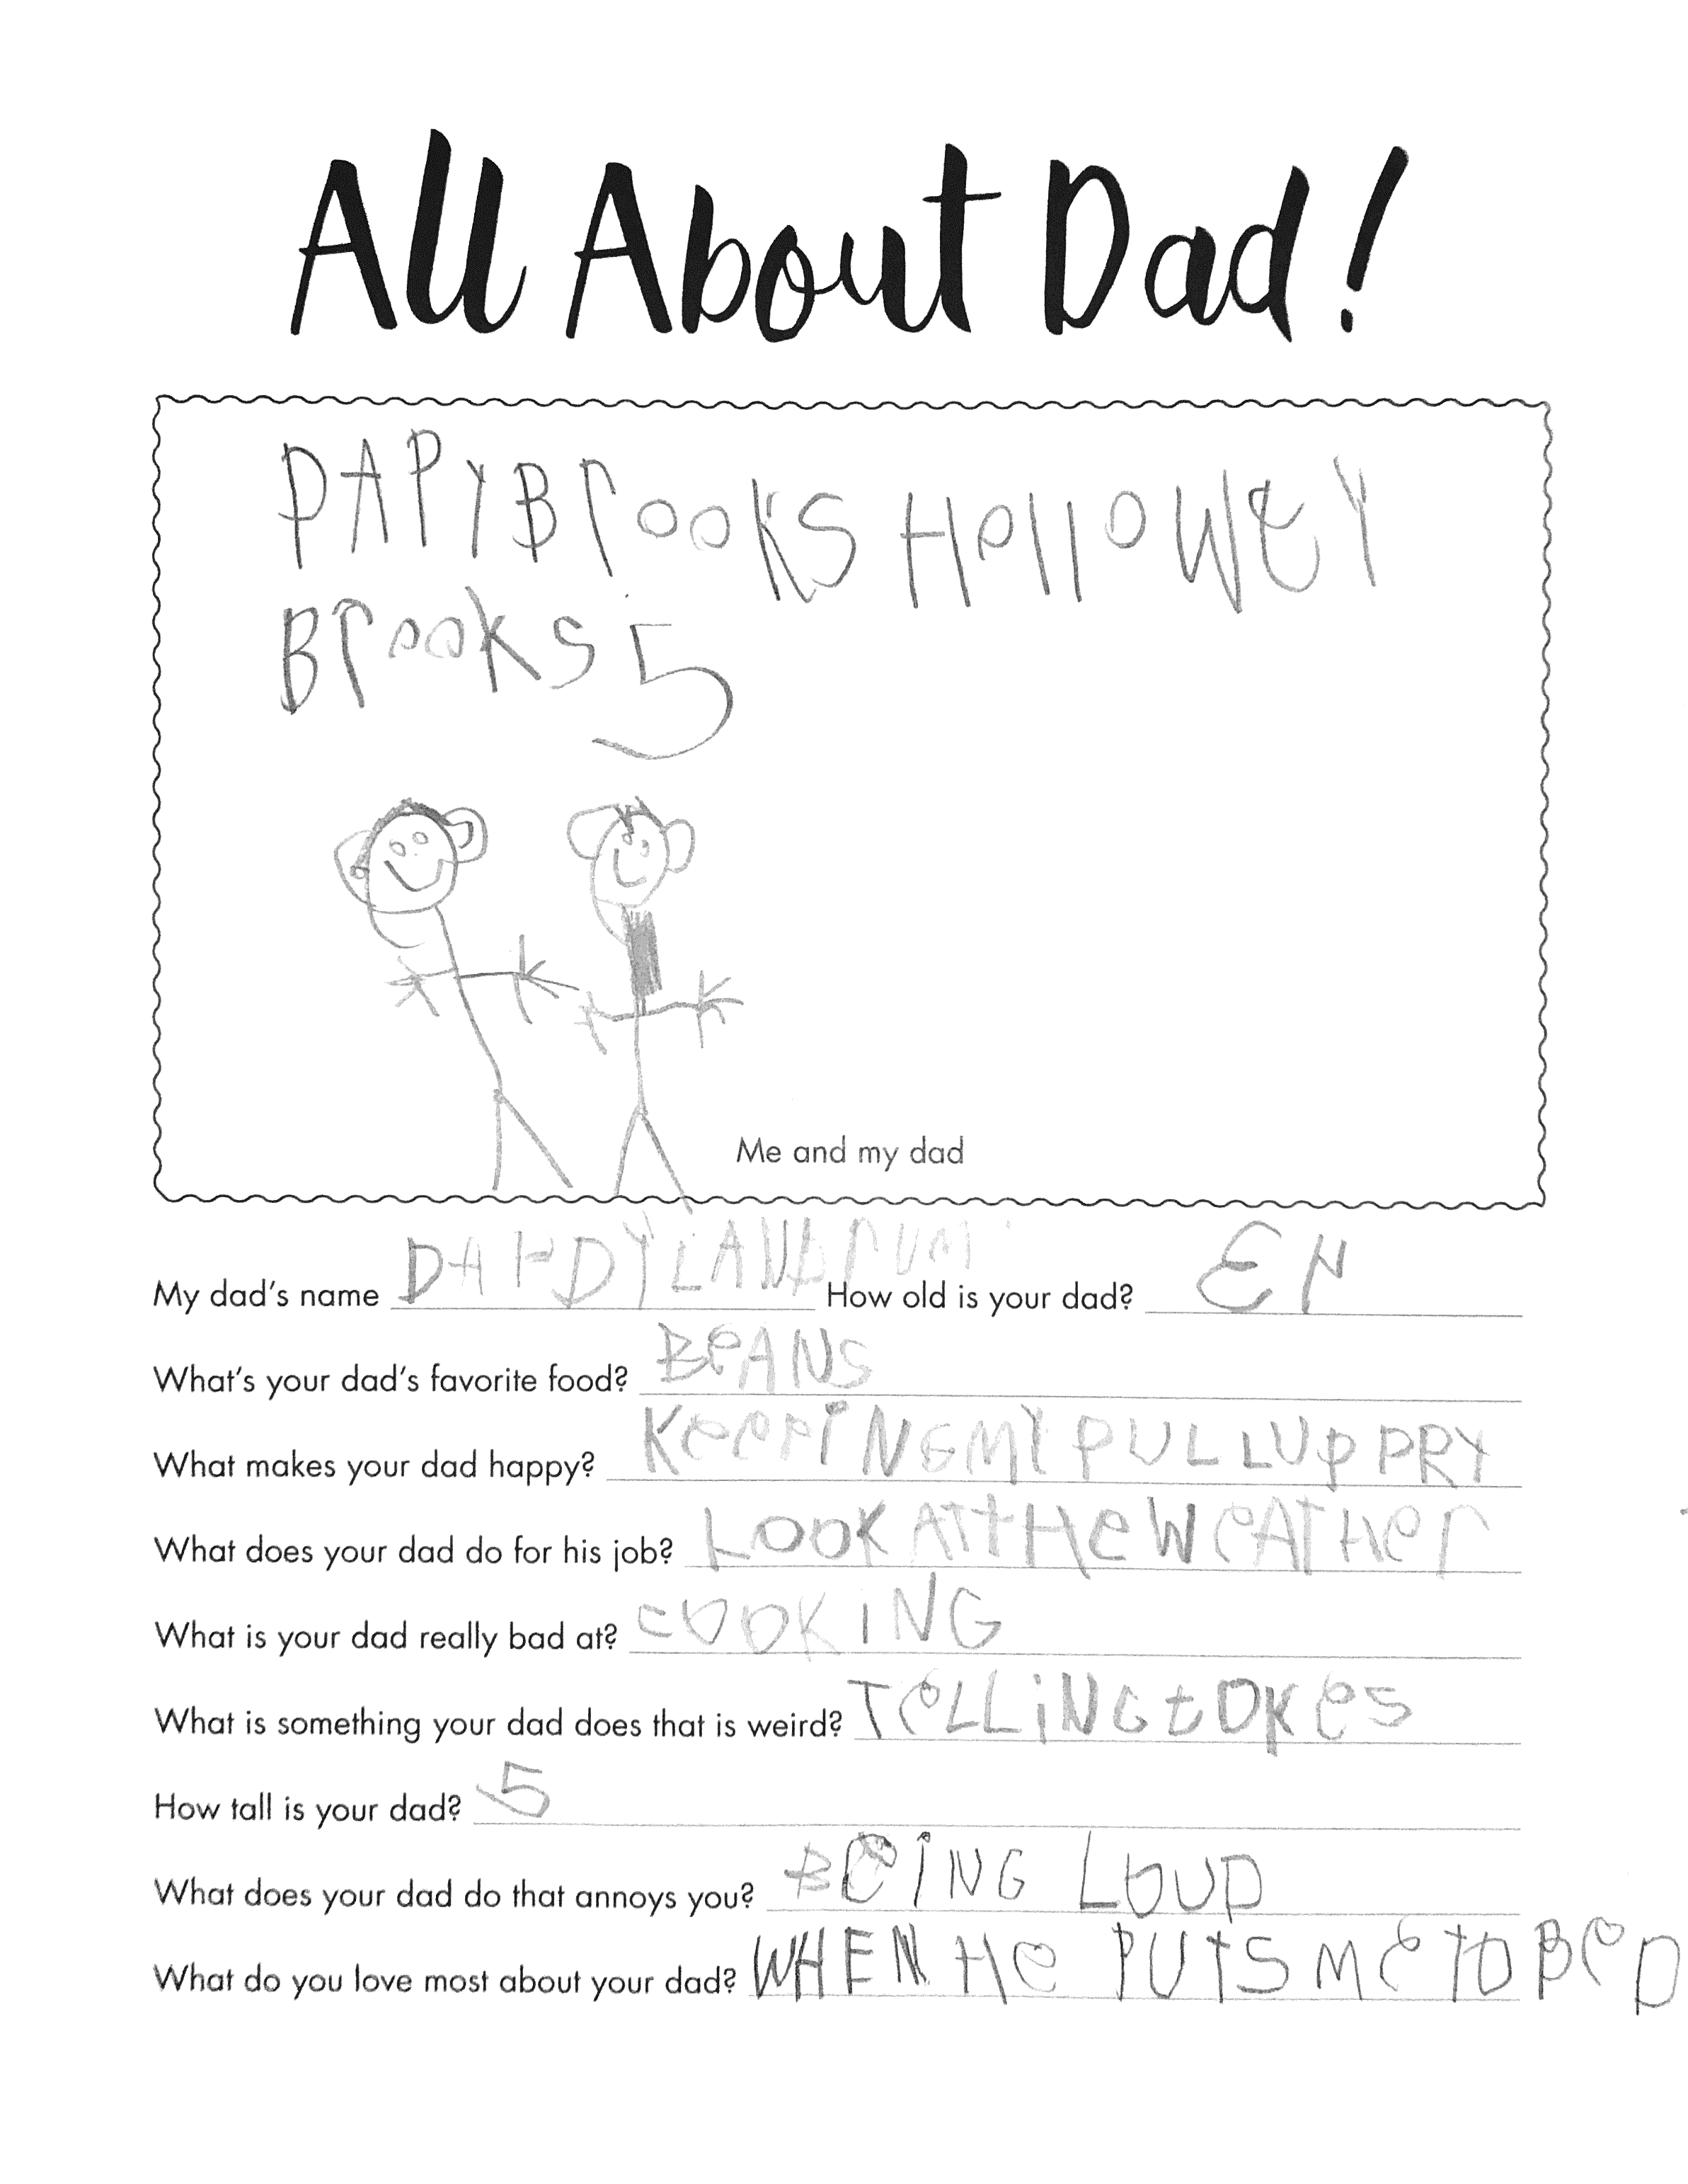 All About Dad!
PAPYBrooKS HelloWeY
Brooks 5
Me and my dad
My dad's name How old is your dad?
What's your dad's favorite food? BeANS
What makes your dad happy? KeePiNGMY PULLUP DRY
What does your dad do for his job? LOOK ATtHeWeATHer
What is your dad really bad at? COOKiNG
What is something your dad does that is weird? TeLLiNG JOKeS
How tall is your dad? 5
What does your dad do that annoys you? BeiNG LOUD
What do you love most about your dad? WHEN He PUtS Me tO BeD